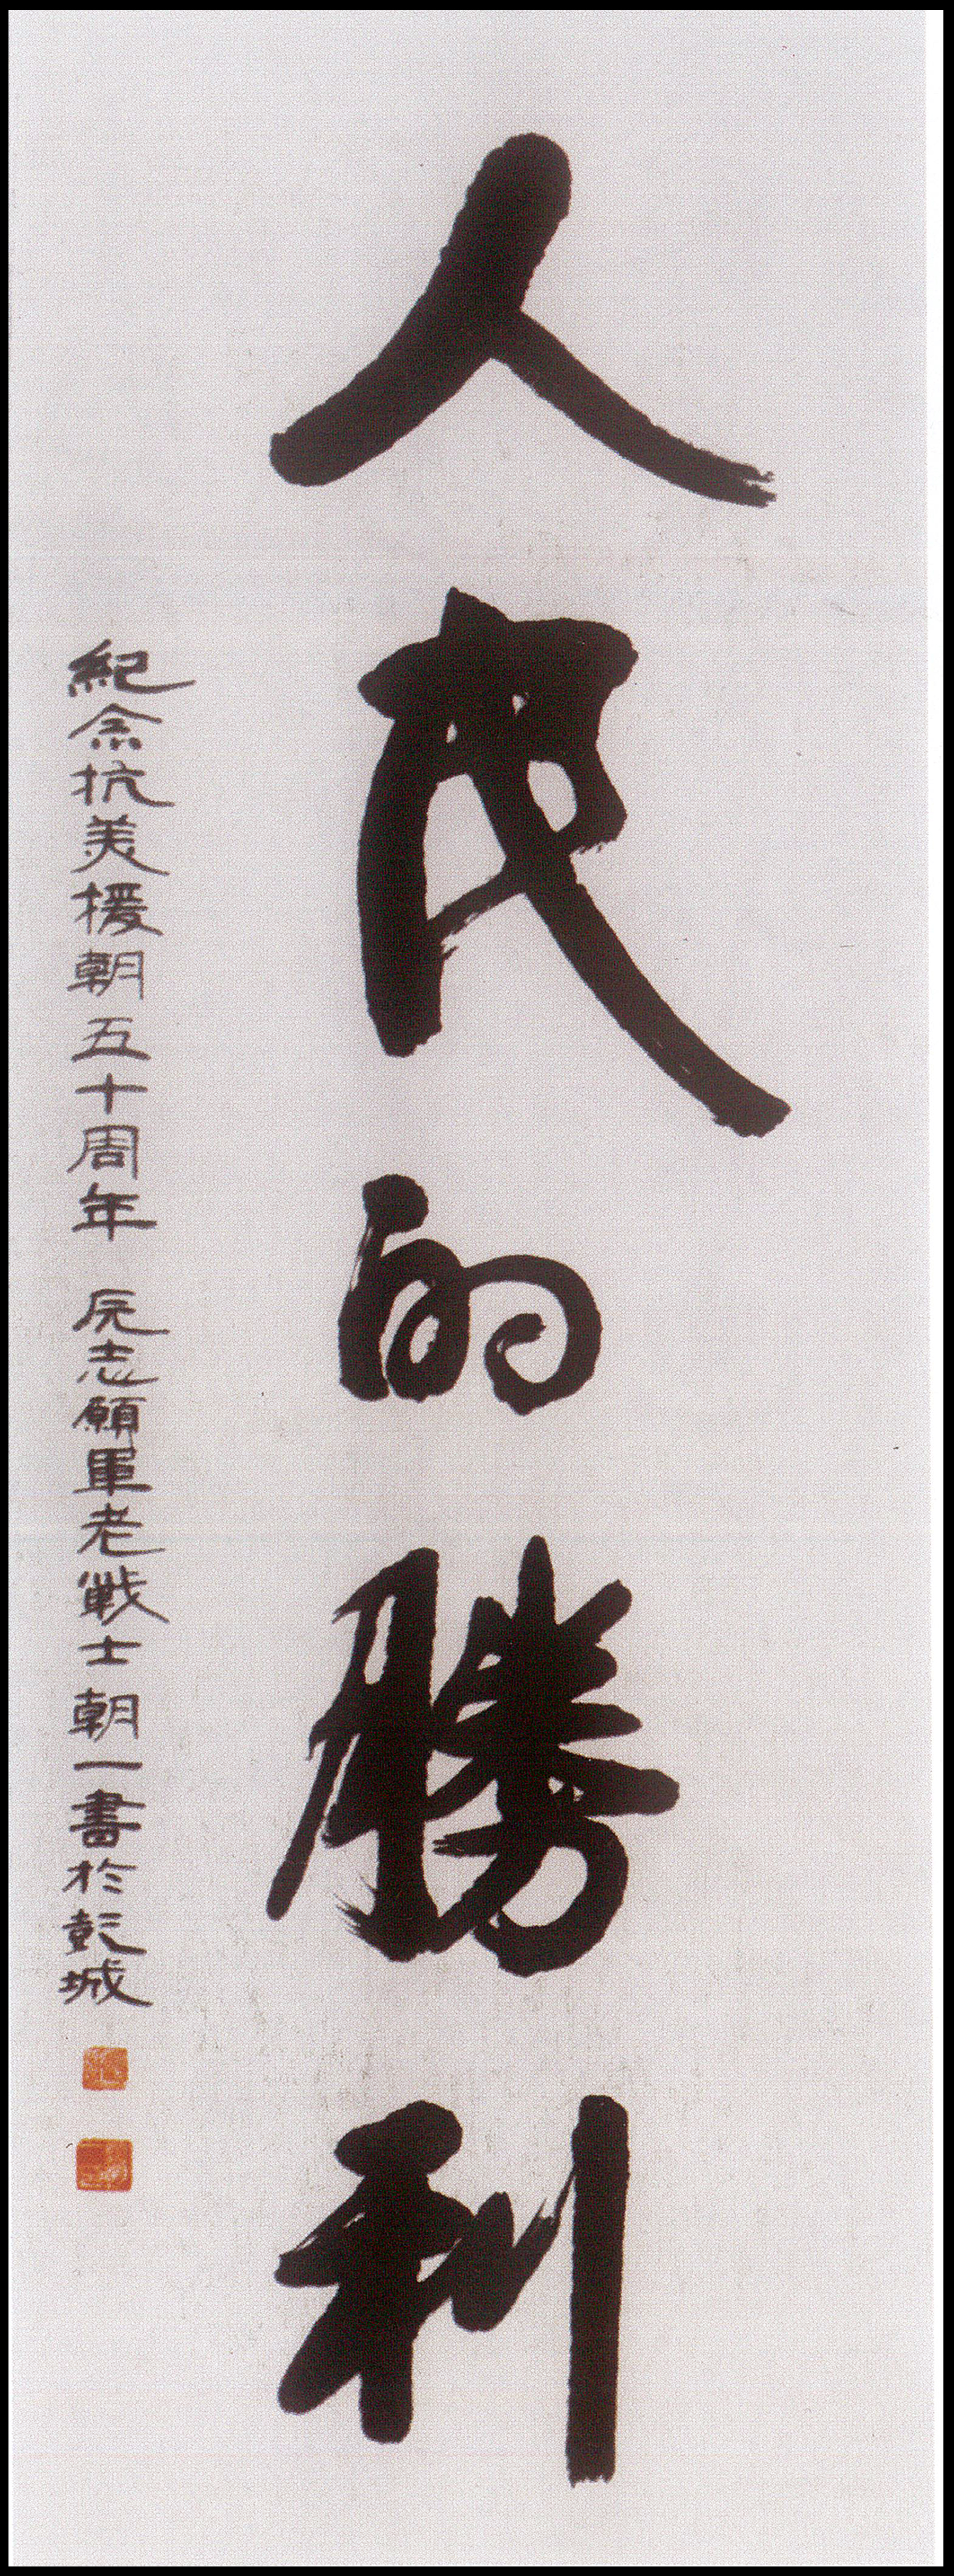 人民的勝利
紀念抗美援朝五十周年 原志願軍老戰士朝一書於彭城